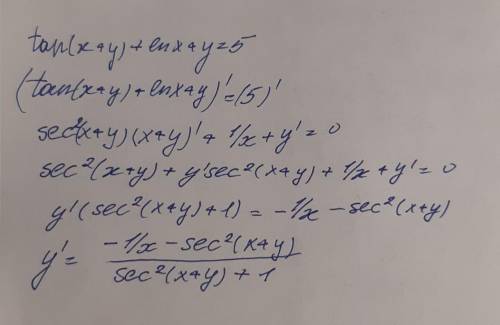 tan(x+y)+lnx+y=5
(tan(x+y)+lnx+y)'=(5)'
sec²(x+y)(x+y)'+1/x+y'=0
sec²(x+y)+y'sec²(x+y)+1/x+y'=0
y'(sec²(x+y)+1)=-1/x-sec²(x+y)
y'= -1/x-sec²(x+y) / sec²(x+y)+1